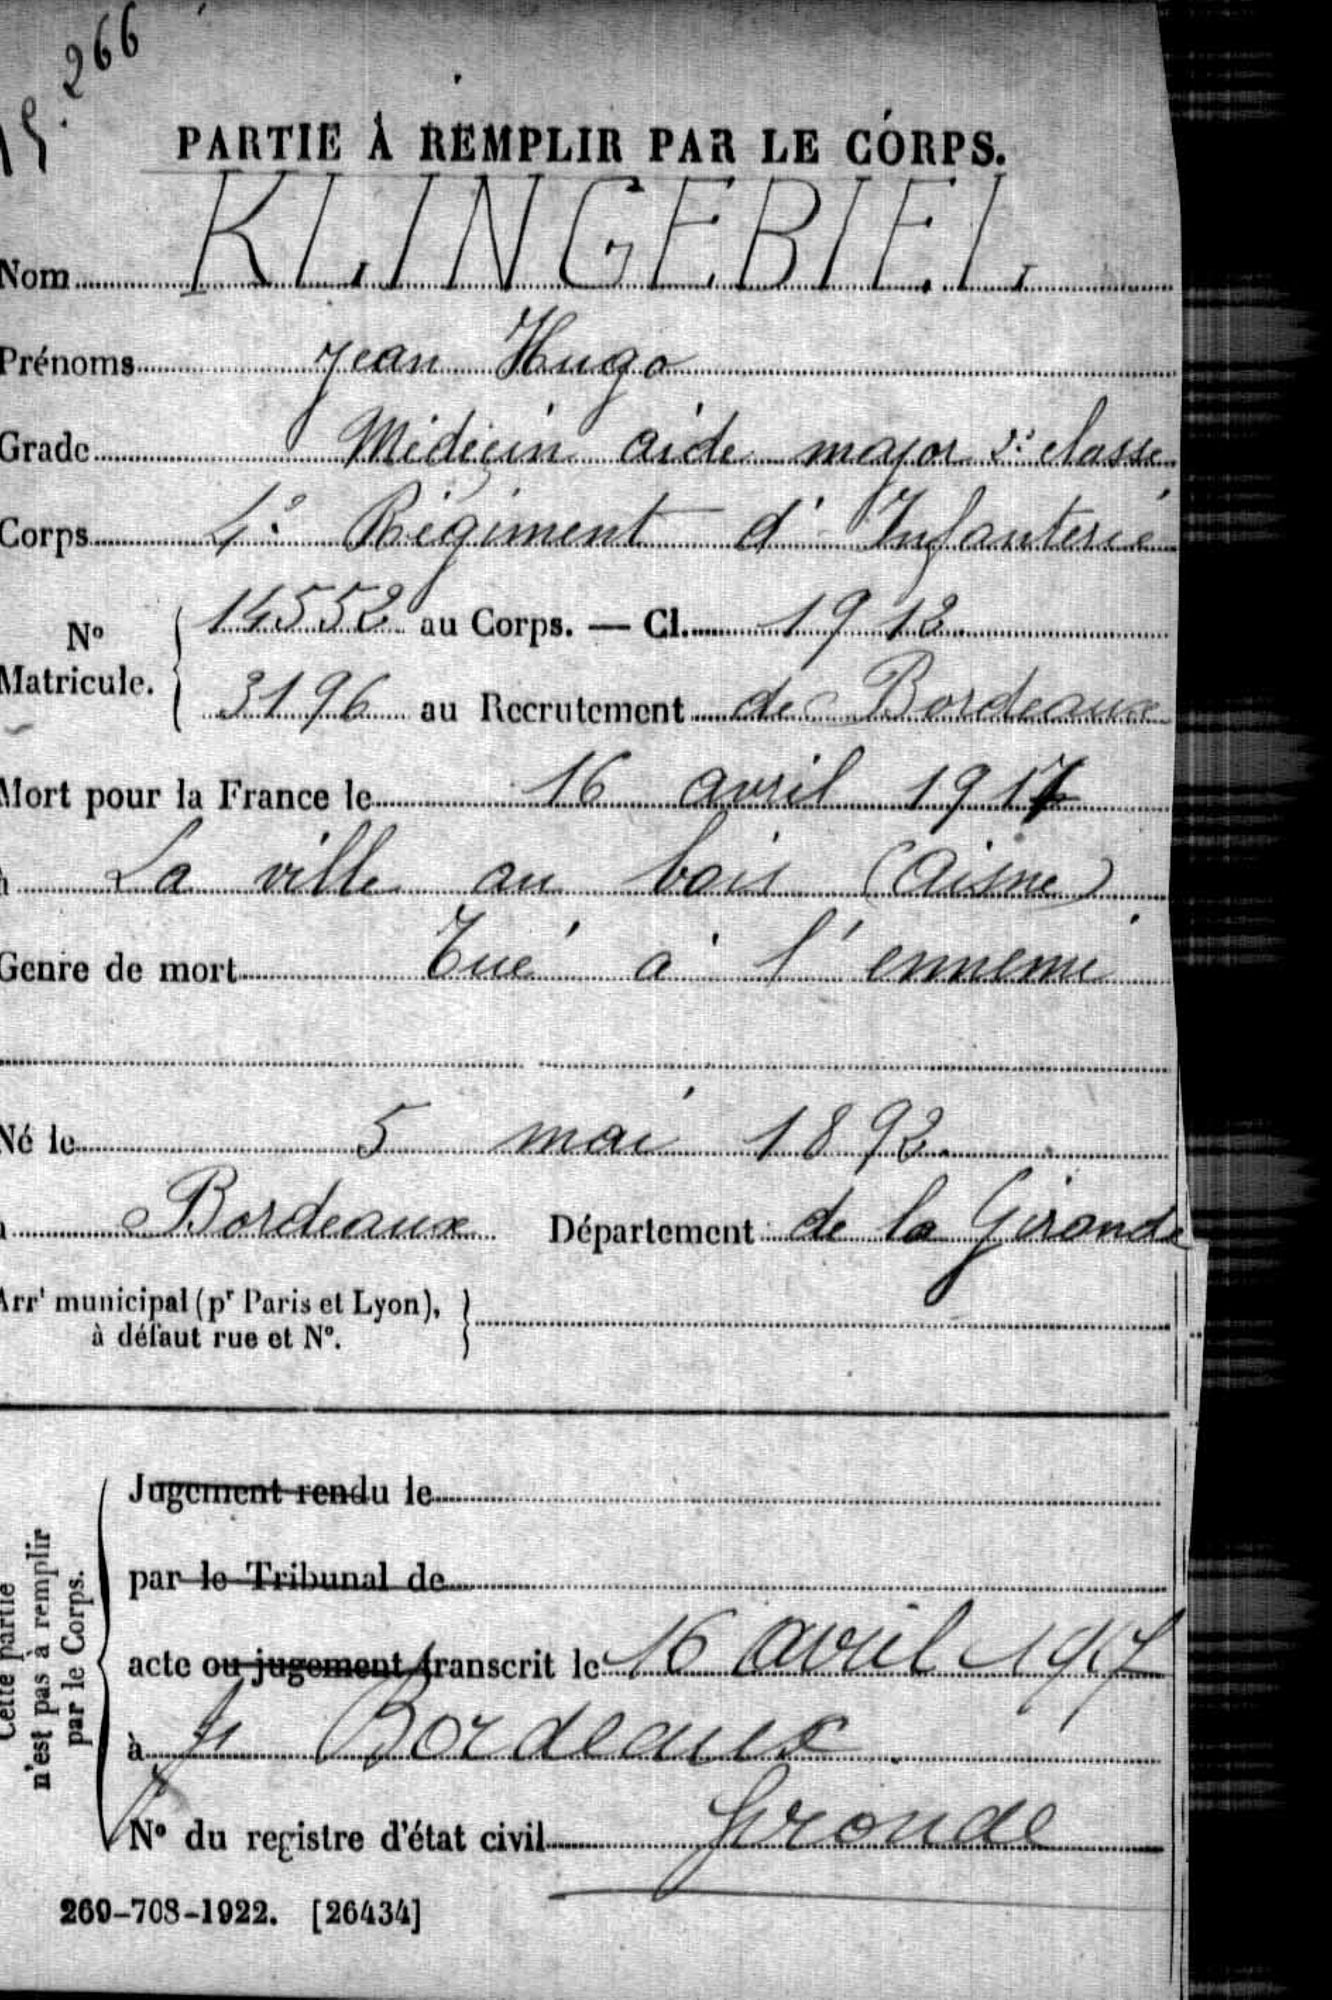 266
PARTIE À REMPLIR PAR LE CORPS.
Nom KLINGEBIEL
Prénoms Jean Hugo
Grade Médecin aide major 2e classe
Corps 4e Régiment d'Infanterie
No Matricule. 14552 au Corps. — Cl. 1912
3196 au Recrutement de Bordeaux
Mort pour la France le 16 avril 1917
à La ville au bois (Aisne)
Genre de mort Tué à l'ennemi
Né le 5 mai 1892
à Bordeaux Département de la Gironde
Arrt municipal (pr Paris et Lyon),
à défaut rue et No.
Cette partie
n'est pas à remplir
par le Corps.
Jugement rendu le
par le Tribunal de
acte ou jugement transcrit le 16 avril 1917
à Bordeaux
No du registre d'état civil Gironde
260-708-1922. [26434]